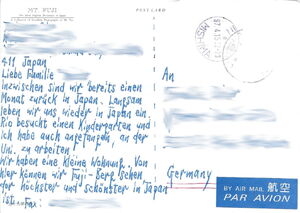 MT. FUJI
POST CARD
411 Japan
Liebe Familie
Inzwischen sind wir bereits einen
Monat zurück in Japan. Langsam
leben wir uns wieder in Japan ein.
Rio besucht einen Kindergarten und
ich habe auch angefangen, an der
Uni. zu arbeiten
Wir haben eine kleine Wohnung. Von
hier können wir Fuji-Berg sehen
der höchster und schönster in Japan
ist.
An
Germany
BY AIR MAIL 航空
PAR AVION